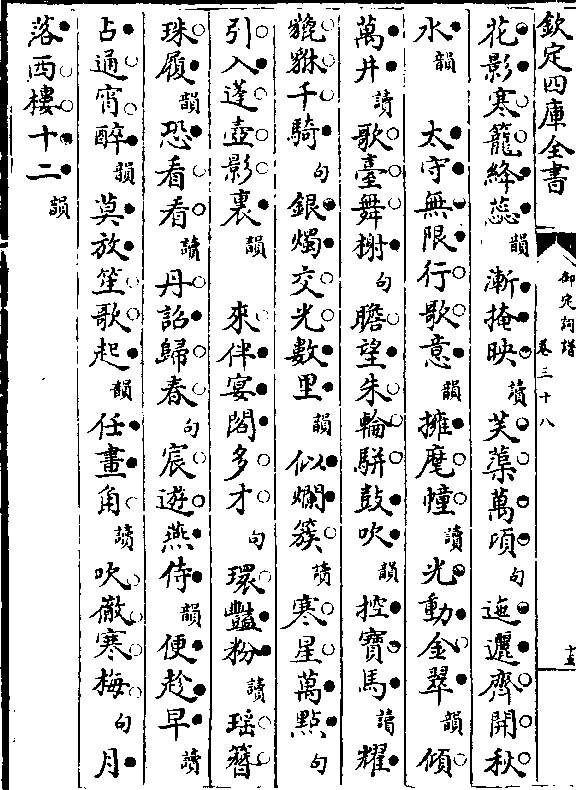 欽定四庫全書
御定詞譜
卷三十八
十五
花影寒籠絳蕊韻漸掩映讀芙蕖萬頃句迤邐齊開秋
水韻太守無限行歌意韻擁麾幢讀光動金翠韻傾
萬井讀歌臺舞榭句瞻望朱輪駢鼓吹韻控寶馬讀耀
貔貅千騎句銀燭交光數里韻似爛簇讀寒星萬點句
引入蓬壺影裏韻來伴宴閣多才句環豔粉讀瑤簪
珠履韻恐看看讀丹詔歸春句宸遊燕侍韻便趁早讀
占通宵醉韻莫放笙歌起韻任畫角讀吹徹寒梅句月
落西樓十二韻